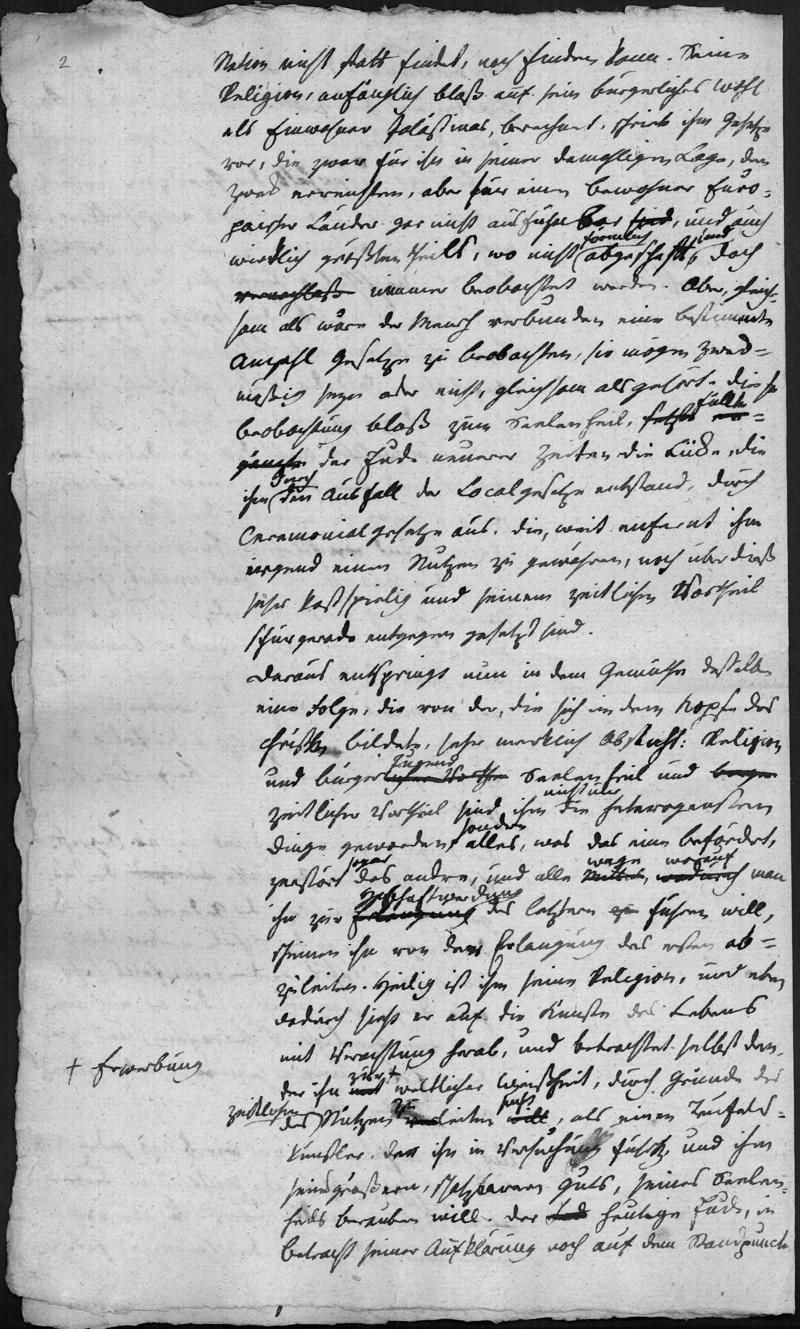 2
Nation nicht statt findet, noch finden kann. Seine
Religion, anfänglich bloß auf sein bürgerliches Wohl
als Einwohner Palästinas, berechnet, schrieb ihm Gesetze
vor, die zwar für ihn in seiner damahligen Lage, den
Zweck erreichten, aber für einen Bewohner Euro-
päischer Länder gar nicht ausführbar sind, und auch
wirklich größten theils, wo nicht förmlich abgeschafft, doch
vernachläß nimmer beobachtet werden. Aber, gleich-
sam als wäre der Mensch verbunden eine bestimmte
Anzahl Gesetze zu beobachten, sie mögen zweck-
mäßig seyn oder nicht, gleichsam als gehörte diese
Beobachtung bloß zum Seelenheil, füllte
der Jude neuerer Zeiten die Lücke, die
ihm durch den Ausfall der Localgesetze entstand, durch
Ceremonialgesetze aus, die, weit enfernt ihm
irgend einen Nutzen zu gewähren, noch überdieß
sehr kostspielig und seinem zeitlichen Vortheil
schnurgerade entgegen gesetzt sind.
Daraus entspringt nun in dem Gemüthe desselben
eine Folge, die von der, die sich in dem Kopfe des
Christen bildete, sehr merklich absticht: Religion
und bürgerliche Tugend Seelenheil und
zeitlicher Vortheil sind ihm nicht nur die heterogensten
Dinge geworden, sondern alles, was das eine befördert,
zerstört sogar das andre, und alle Wege, worauf man
ihn zur Habhaftwerdung des letztern führen will,
scheinen ihn von der Erlangung des ersten ab-
zuleiten. Heilig ist ihm seine Religion, und eben
dadurch sieht er auf die Künste des Lebens
mit Verachtung herab, und betrachtet selbst den,
† Erwerbung
der ihn zur † weltlicher Weisheit, durch Gründe des
zeitlichen Nutzens zu leiten sucht, als einen Teufels-
künstler, der ihn in Versuchung führt, und ihn
seines größern, schätzbarern Guts, seines Seelen-
heils berauben will. Der heutige Jude, in
Betracht seiner Aufklärung noch auf dem Standpunct